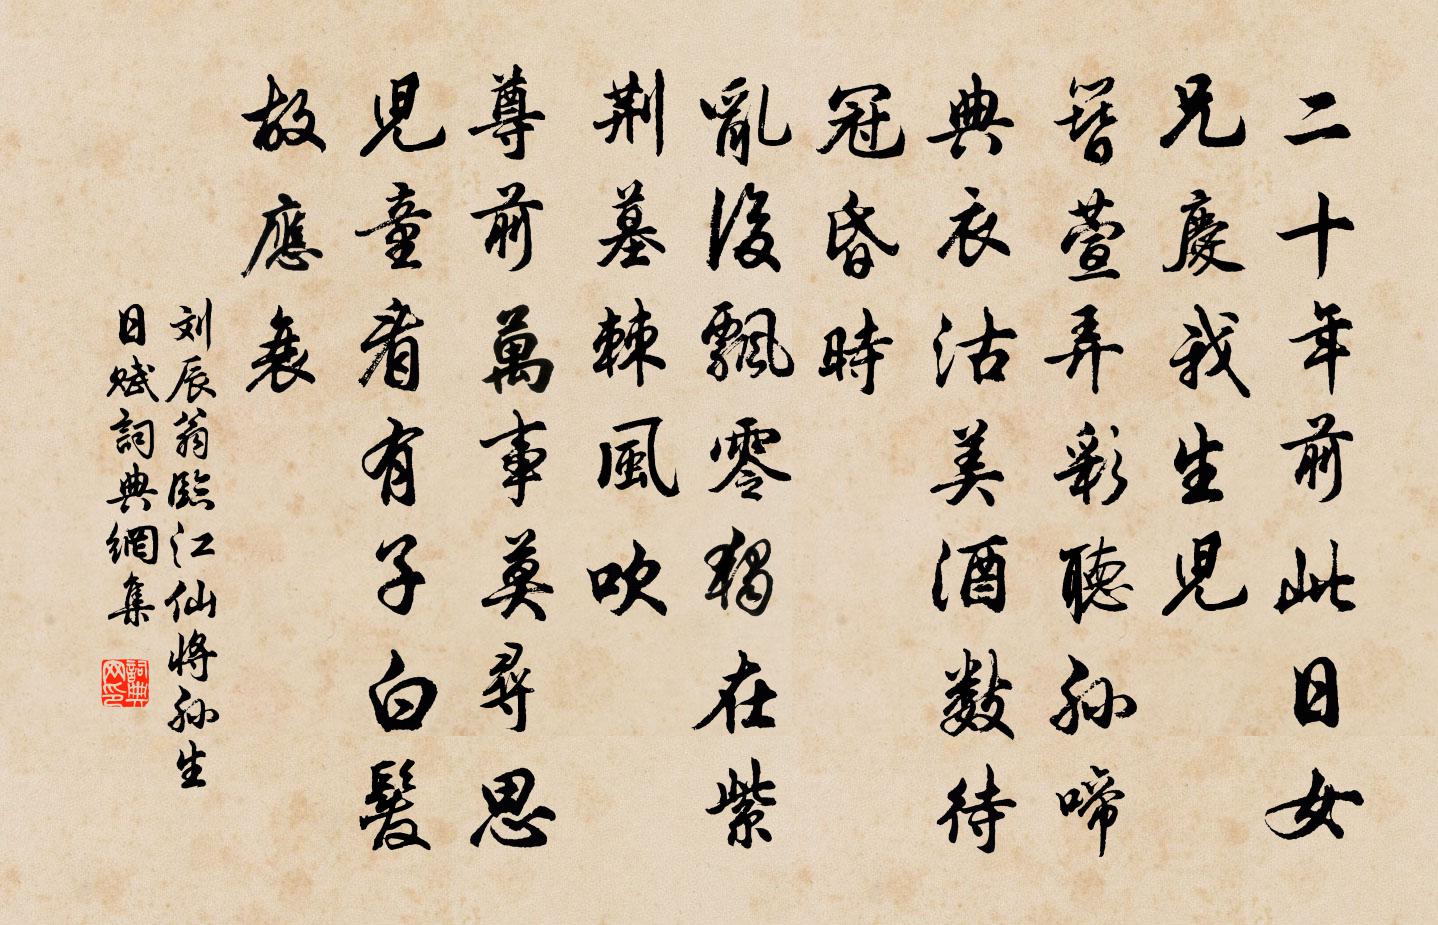 二十年前此日女
兄慶我生兒
簪萱弄彩聽孫啼
典衣沽美酒數待
冠昏時
亂後飄零獨在紫
荆墓棘風吹
尊前萬事莫尋思
兒童看有子白髮
故應衰
刘辰翁臨江仙將孫生
日赋詞典網集
詞典网印